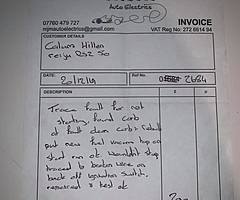 Auto Electrics
07760 479 727
mjmautoelectrics@gmail.com
INVOICE
VAT Reg No: 272 6614 94
CUSTOMER DETAILS
Callum Millen
DATE
20/12/19
Ref No.
2684
DESCRIPTION
Trace fault for not
starting, found carb
at fault clean carb & rebuild
put new fuel vacuum tap on
start run ok wouldn't stop
traced to broken wire on
back off ignition switch,
reconnect & test ok